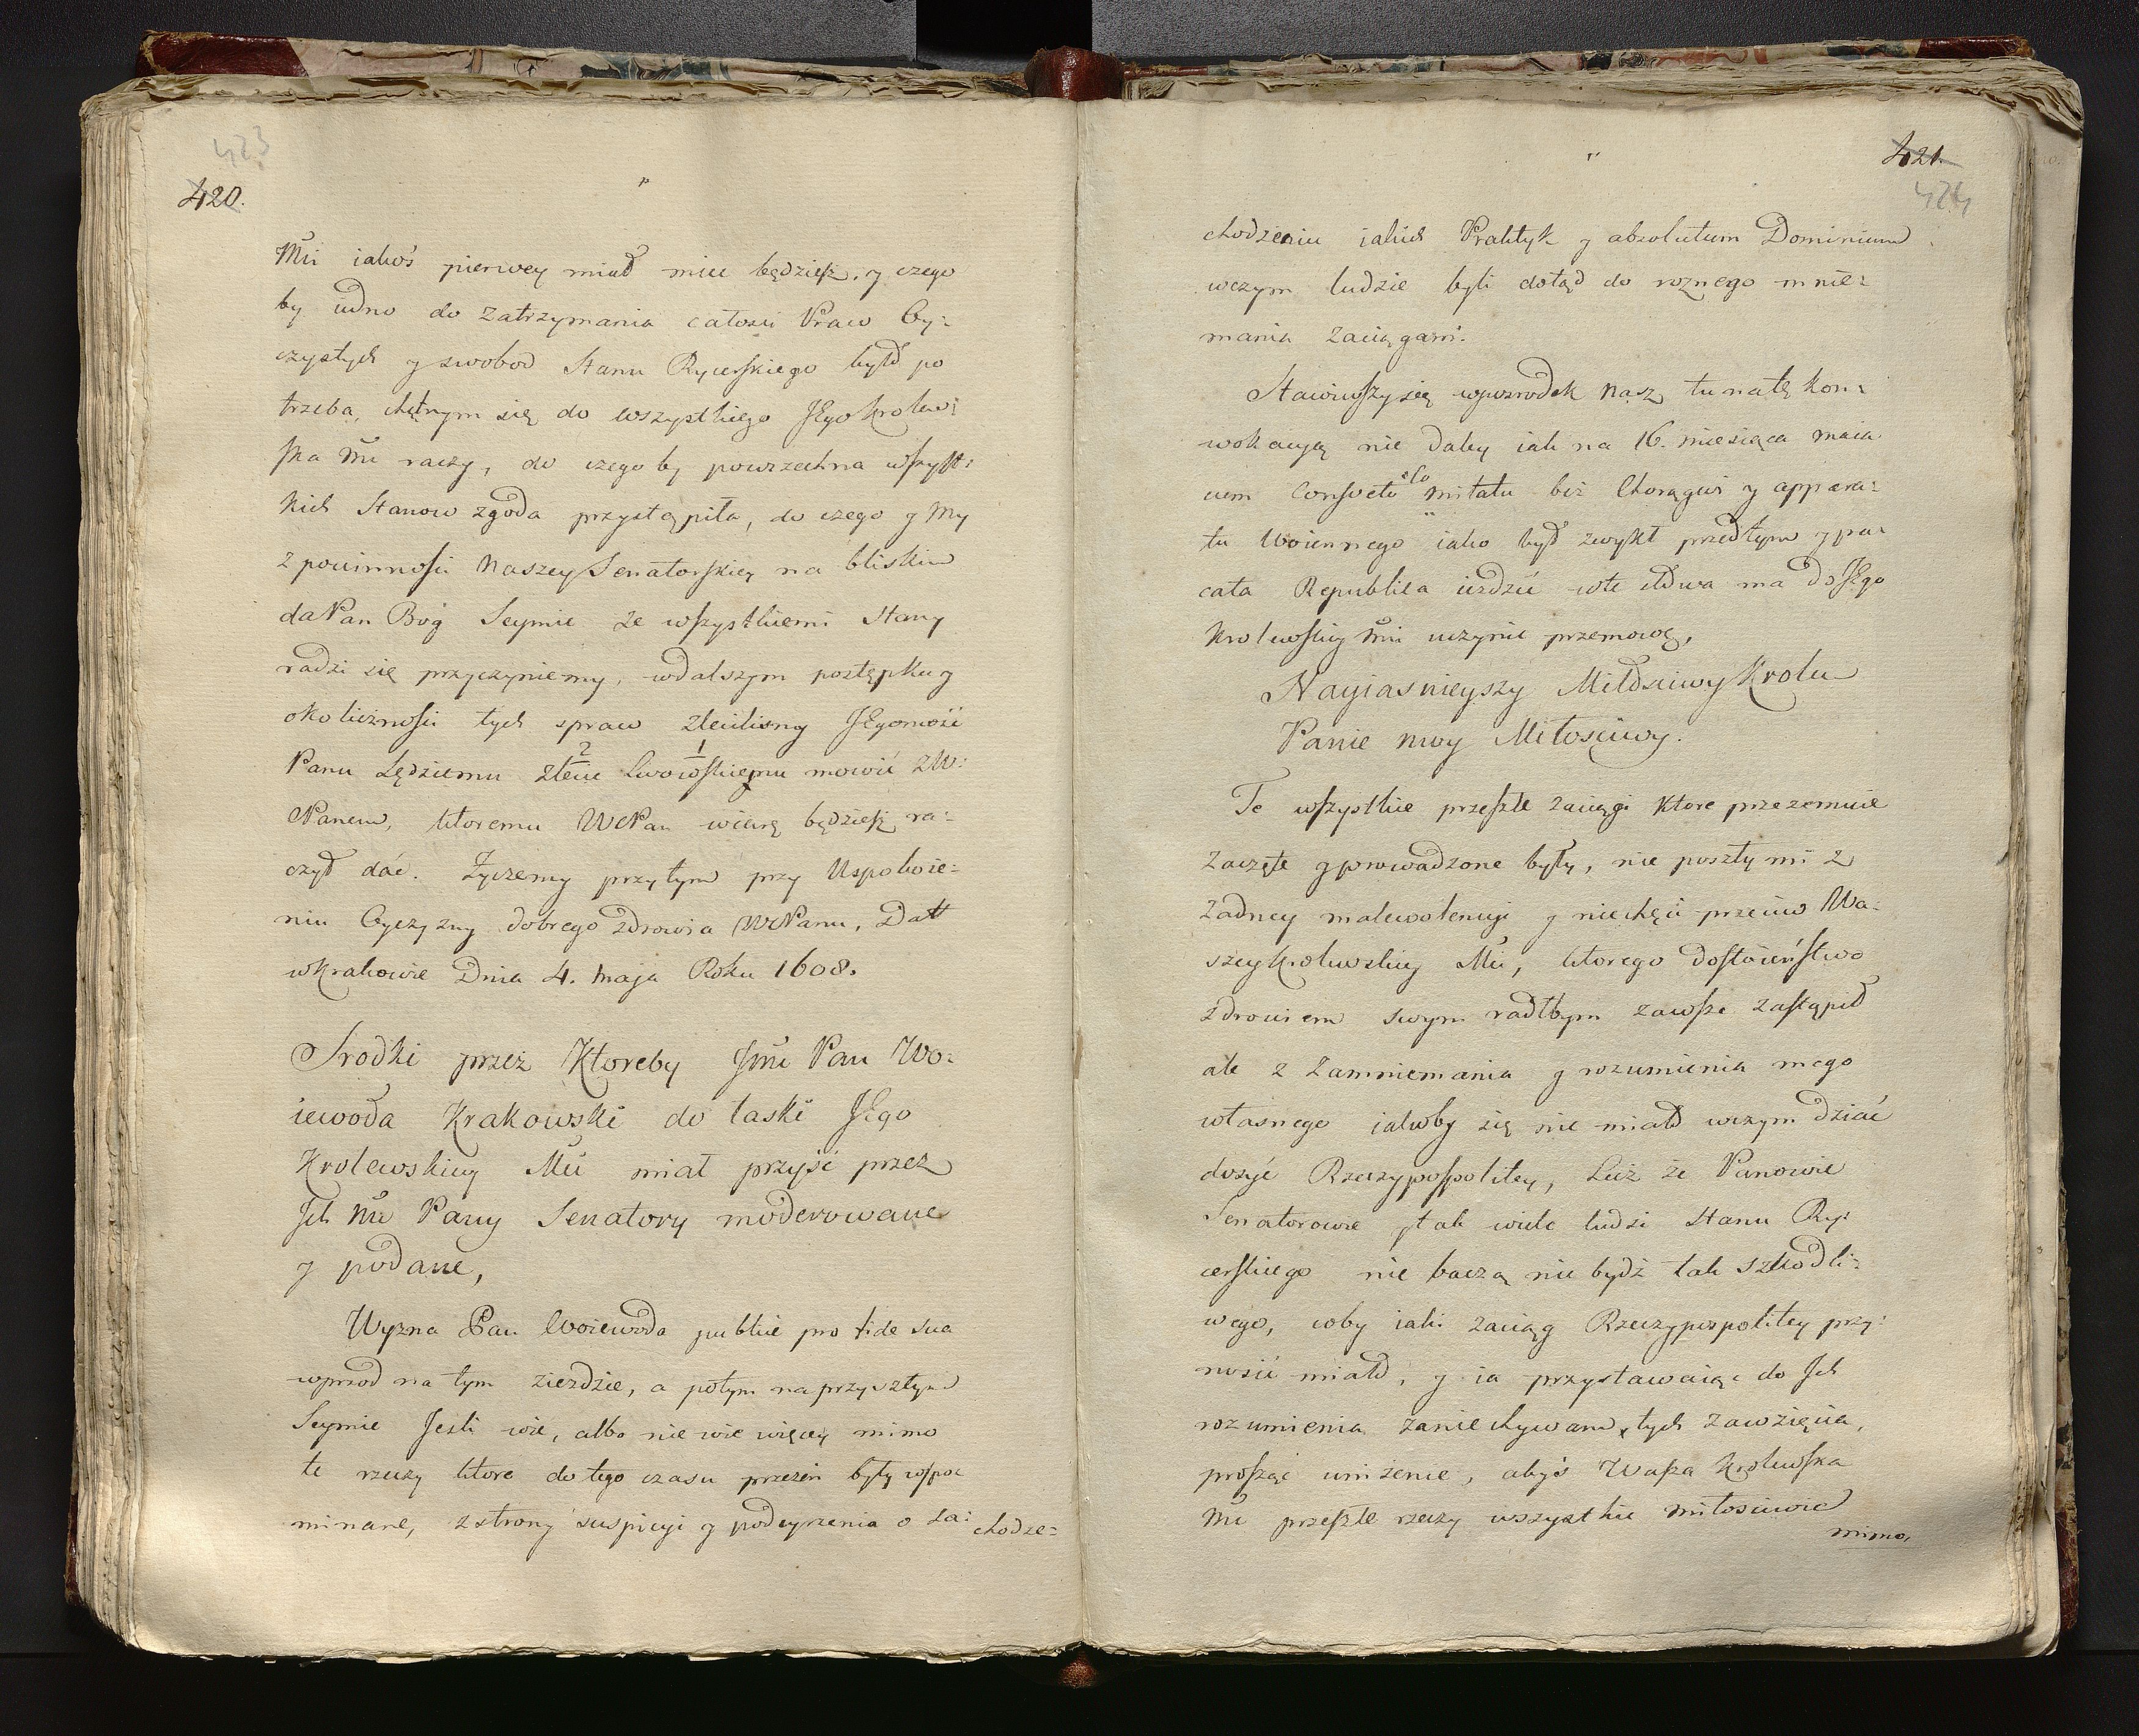 423
420.
Mci iakoś pierwey miał mieć będziesz. y czego
by iedno do zatrzymania całości Praw Oy:
czystych y swobod Stanu Rycerskiego było po
trzeba, chętnym się do wszystkiego JEgo Krolew:
ska Mć raczy, do czego by powszechna wszyst:
kich Stanow zgoda przystąpiła, do czego y My
z powinności Naszey Senatorskiey na bliskim
da Pan Bóg Seymie ze wszystkiemi Stany
radzi się przyczyniemy, w dalszym postępku y
okoliczności tych spraw zleciliśmy JEgomość
Panu Sędziemu 2 zlecić 1 Lwowskiemu mowić z W:
MPanem, ktoremu WMPan wiarę będziesz ra:
czył dać. Życzemy przytym przy Uspokoie:
niu Oyczyzny dobrego zdrowia WMPanu, Datt
w Krakowie Dnia 4. maja Roku 1608.
Srodki przez Ktoreby Jmć Pan Wo:
iewoda Krakowski do łaski JEgo
Krolewskiey Mci miał przyść przez
Ich Mć Pany Senatory moderowane
y podane,
Wyzna Pan Woiewoda publice pro fide sua
wprzod na tym zieździe, a potym na przyszłym
Seymie Jesli wie, albo nie wie więcey mimo
te rzeczy ktore do tego czasu przezeń były wspo
minane, z strony suspicyi y podeyrzenia o za:
chodze=
421.
424
chodzeniu iakich Praktyk y absolutum Dominium
w czym ludzie byli dotąd do roznego mnie:
mania zaciągani.
Stawiwszy się wposrodek nasz, tu na tę kon:
wokacyą nie daley iak na 16. miesiąca maia
cum Consveto Co mitatu bez Chorągwi y appara:
tu Woiennego iako był zwykł przedtym y pa:
cata Republica iezdzić w te słowa ma do JEgo
Krolewskiey Mci uczynić przemowę,
Nayiasnieyszy Miłościwy Krolu
Panie moy Miłościwy.
Te wszystkie przeszłe zaciągi ktore przezemnie
zaczęte y prowadzone były, nie poszły mi z
żadney malewolencyi y niechęci przeciw Wa:
szey Krolewskiey Mci, ktorego dostoieństwo
zdrowiem swym radbym zawsze zastąpił
ale z zamniemania y rozumienia mego
własnego iakoby się nie miało w czym dziać
dosyć Rzeczypospolitey, Lecz że Panowie
Senatorowie y tak wiele ludzi Stanu Ry:
cerskiego nie baczą nie bydź tak szkodli:
wego, coby iaki zaciąg Rzeczypospolitey przy:
nosić miało, y ia przystawaiąc do Ich
rozumienia zaniechywam, tych zawzięcia,
prosząc uniżenie, abyś Wasza Krolewska
Mć przeszłe rzeczy wszystkie miłościwie
mimo,